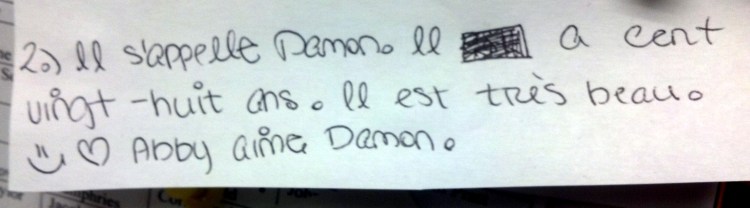 2.) Il s'appelle Damon. Il a cent
vingt-huit ans. Il est très beau.
Abby aime Damon.